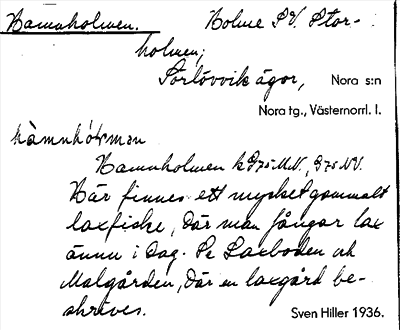 Hamnholmen. Holme S.V. Stor-
holmen;
Sörlövvik ägor, Nora s:n
Nora tg., Västernorrl. l.
Hamnholmen k 975 M.N., 975 NV.
Här finnes ett mycket gammalt
laxfiske, där man fångar lax
ännu i dag. Se Laxboden och
Malgården, där en laxgård be-
skrives. Sven Hiller 1936.